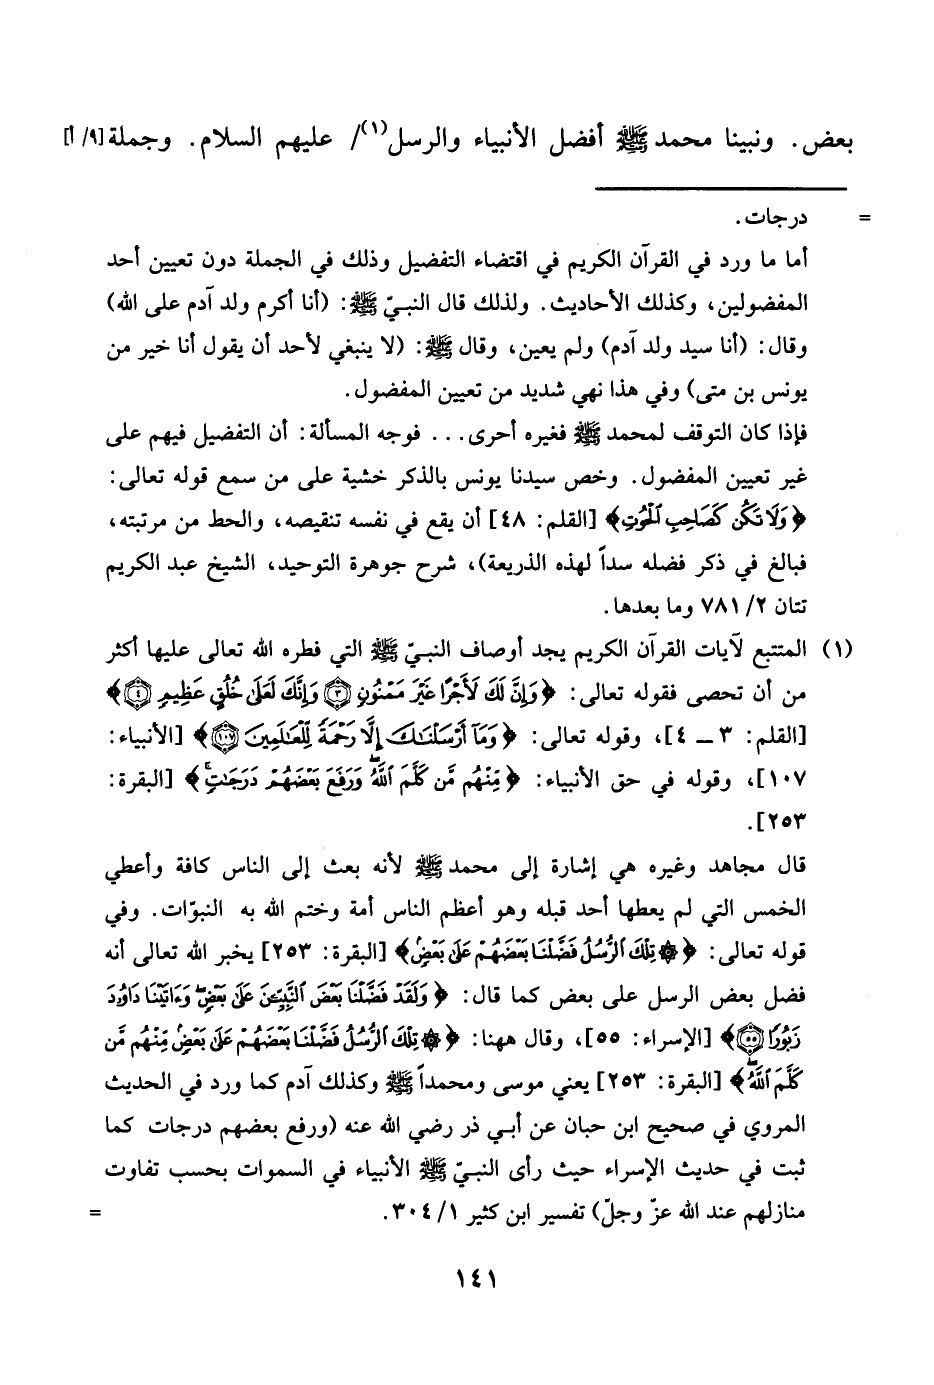 بعض. ونبينا محمد ﷺ أفضل الأنبياء والرسل(١)/ عليهم السلام. وجملة [٩/ أ]
= درجات.
أما ما ورد في القرآن الكريم في اقتضاء التفضيل وذلك في الجملة دون تعيين أحد
المفضولين، وكذلك الأحاديث. ولذلك قال النبيّ ﷺ: (أنا أكرم ولد آدم على الله)
وقال: (أنا سيد ولد آدم) ولم يعين، وقال ﷺ: (لا ينبغي لأحد أن يقول أنا خير من
يونس بن متى) وفي هذا نهي شديد من تعيين المفضول.
فإذا كان التوقف لمحمد ﷺ فغيره أحرى... فوجه المسألة: أن التفضيل فيهم على
غير تعيين المفضول. وخص سيدنا يونس بالذكر خشية على من سمع قوله تعالى:
﴿وَلَا تَكُن كَصَاحِبِ ٱلْحُوتِ﴾ [القلم: ٤٨] أن يقع في نفسه تنقيصه، والحط من مرتبته،
فبالغ في ذكر فضله سداً لهذه الذريعة)، شرح جوهرة التوحيد، الشيخ عبد الكريم
تتان ٢/ ٧٨١ وما بعدها.
(١) المتتبع لآيات القرآن الكريم يجد أوصاف النبيّ ﷺ التي فطره الله تعالى عليها أكثر
من أن تحصى فقوله تعالى: ﴿وَإِنَّ لَكَ لَأَجْرًا غَيْرَ مَمْنُونٍ ٣ وَإِنَّكَ لَعَلَىٰ خُلُقٍ عَظِيمٍ ٤﴾
[القلم: ٣ ــ ٤]، وقوله تعالى: ﴿وَمَآ أَرْسَلْنَٰكَ إِلَّا رَحْمَةً لِّلْعَٰلَمِينَ ١٠٧﴾ [الأنبياء:
١٠٧]، وقوله في حق الأنبياء: ﴿مِّنْهُم مَّن كَلَّمَ ٱللَّهُ وَرَفَعَ بَعْضَهُمْ دَرَجَٰتٍ﴾ [البقرة:
٢٥٣].
قال مجاهد وغيره هي إشارة إلى محمد ﷺ لأنه بعث إلى الناس كافة وأعطي
الخمس التي لم يعطها أحد قبله وهو أعظم الناس أمة وختم الله به النبوّات. وفي
قوله تعالى: ﴿۞ تِلْكَ ٱلرُّسُلُ فَضَّلْنَا بَعْضَهُمْ عَلَىٰ بَعْضٍ﴾ [البقرة: ٢٥٣] يخبر الله تعالى أنه
فضل بعض الرسل على بعض كما قال: ﴿وَلَقَدْ فَضَّلْنَا بَعْضَ ٱلنَّبِيِّـۧنَ عَلَىٰ بَعْضٍ وَءَاتَيْنَا دَاوُۥدَ
زَبُورًا ٥٥﴾ [الإسراء: ٥٥]، وقال ههنا: ﴿۞ تِلْكَ ٱلرُّسُلُ فَضَّلْنَا بَعْضَهُمْ عَلَىٰ بَعْضٍ مِّنْهُم مَّن
كَلَّمَ ٱللَّهُ﴾ [البقرة: ٢٥٣] يعني موسى ومحمداً ﷺ وكذلك آدم كما ورد في الحديث
المروي في صحيح ابن حبان عن أبـي ذر رضي الله عنه (ورفع بعضهم درجات كما
ثبت في حديث الإسراء حيث رأى النبيّ ﷺ الأنبياء في السموات بحسب تفاوت
منازلهم عند الله عزّ وجلّ) تفسير ابن كثير ١/ ٣٠٤. =
١٤١